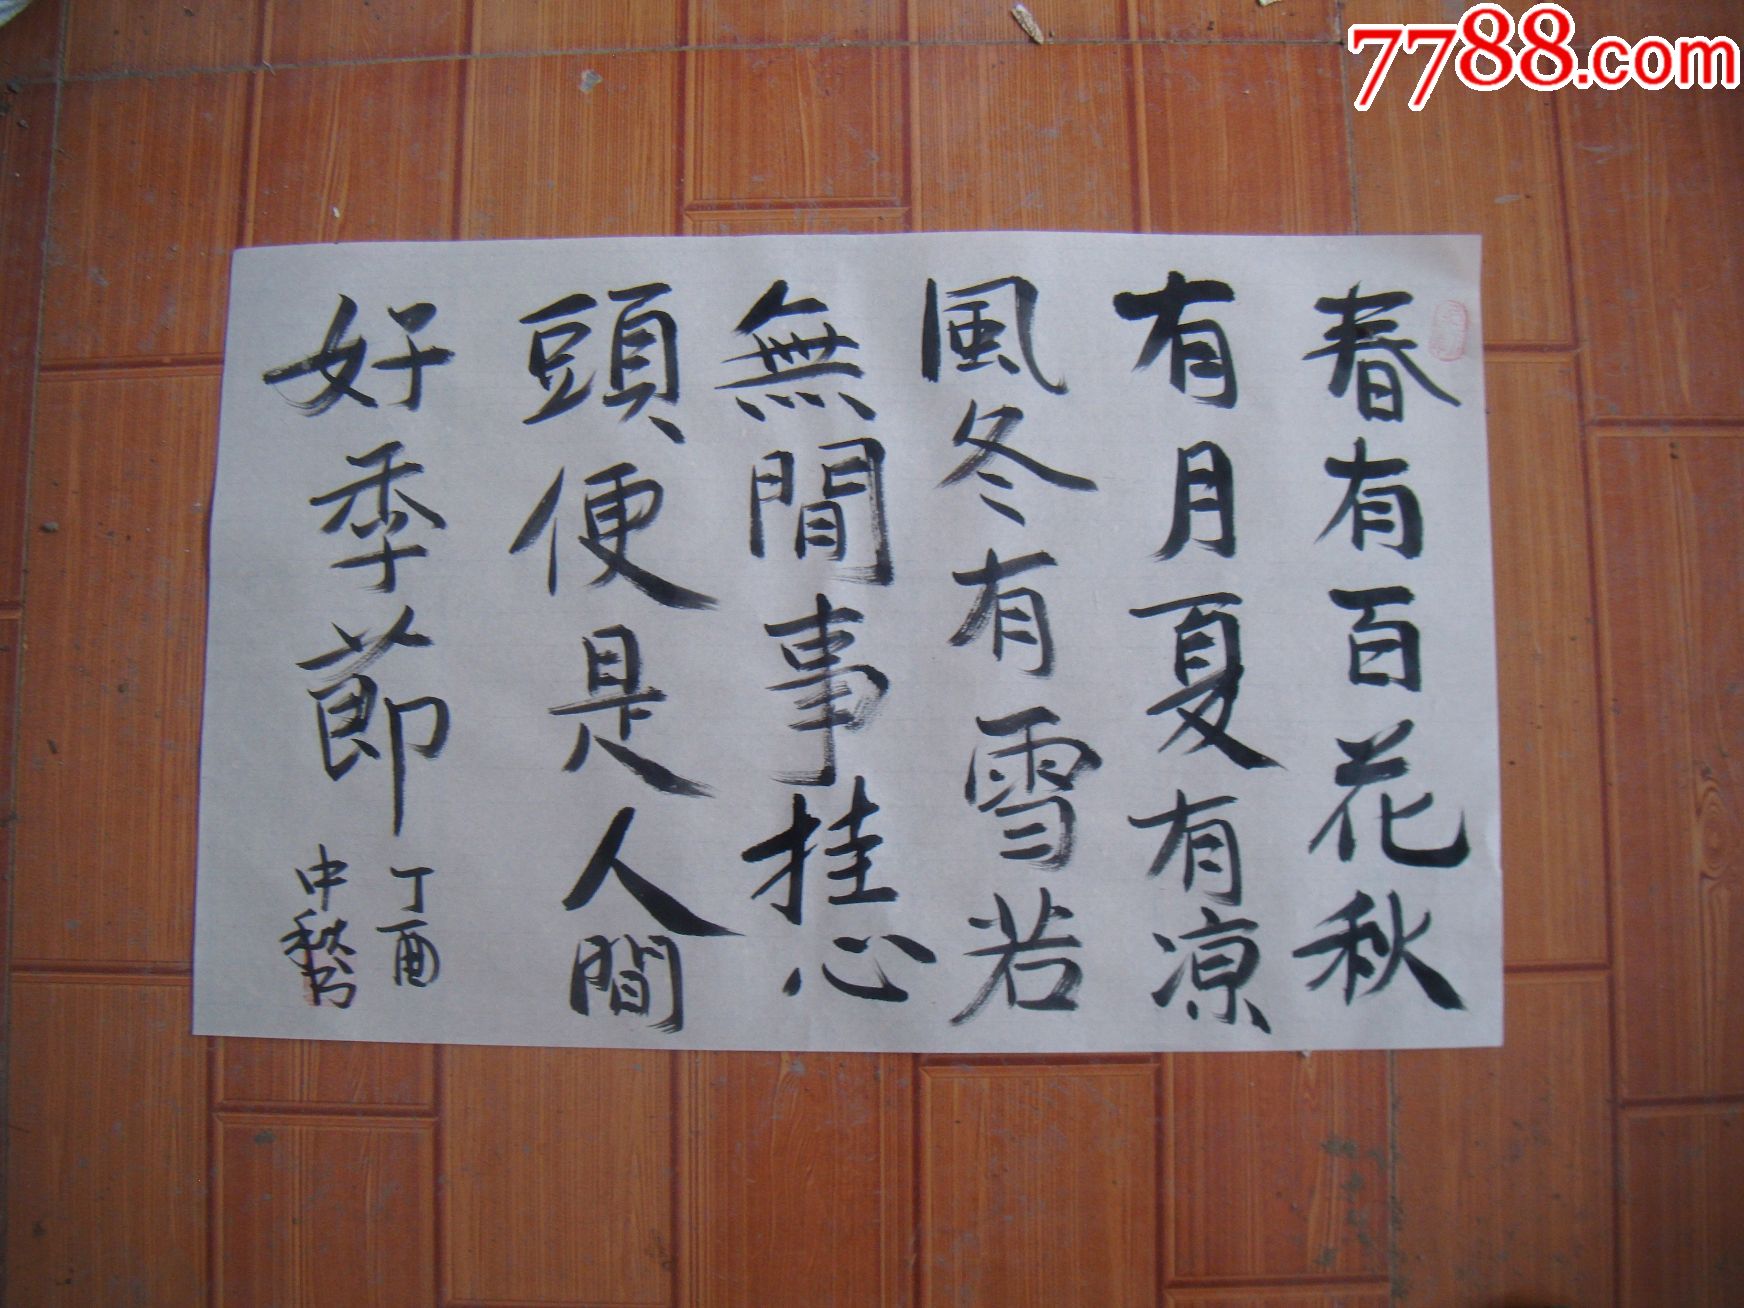 春有百花秋
有月夏有凉
風冬有雪若
無閒事挂心
頭便是人間
好季節
丁酉
中秋书
7788.com